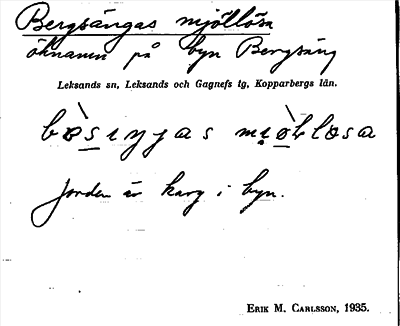 Bergsängas mjöllösa
öknamn på byn Bergsäng
Leksands sn, Leksands och Gagnefs tg, Kopparbergs län.
Jorden är karg i byn.
ERIK M. CARLSSON, 1935.